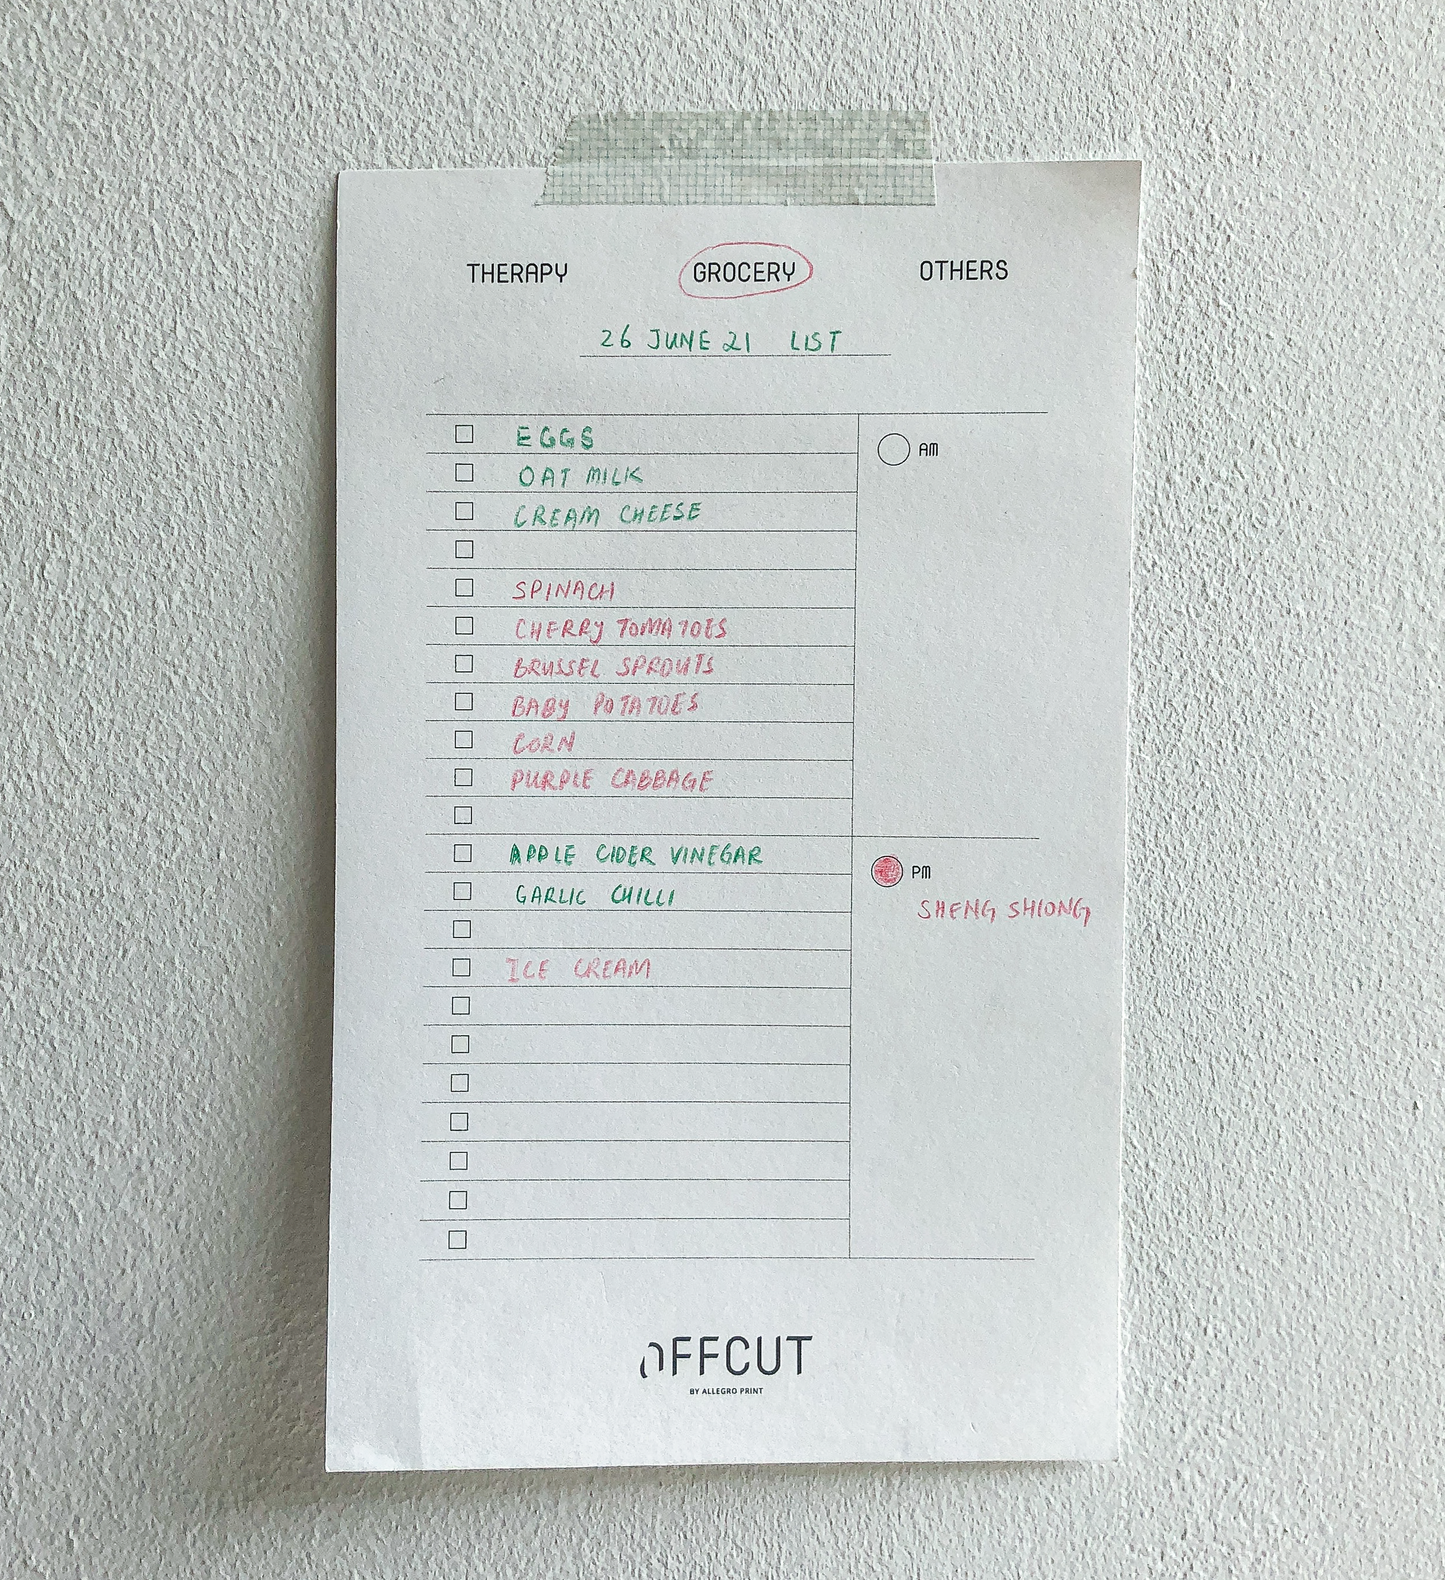 THERAPY GROCERY OTHERS
26 JUNE 21 LIST
EGGS
AM
OAT MILK
CREAM CHEESE
SPINACH
CHERRY TOMATOES
BRUSSEL SPROUTS
BABY POTATOES
CORN
PURPLE CABBAGE
APPLE CIDER VINEGAR
GARLIC CHILLI
PM
SHENG SHIONG
ICE CREAM
OFFCUT
BY ALLEGRO PRINT